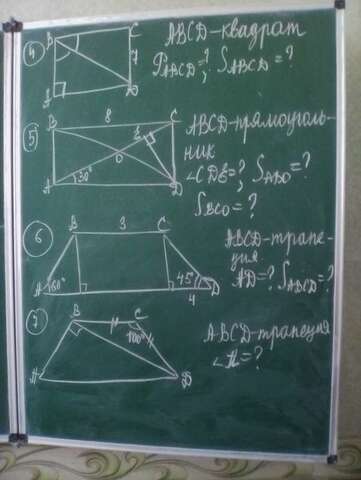 4
B
C
A
D
7
ABCD-квадрат
P ABCD=?; S ABCD=?
5
B
8
C
E
O
A
30°
D
ABCD-прямоуголь-
ник
∠CDE=?, S ABO=?
S BCO=?
6
B
3
C
A
60°
45°
D
4
ABCD-трапе-
ция
AD=? S ABCD=?
7
B
C
100°
A
D
ABCD-трапеция
∠A=?